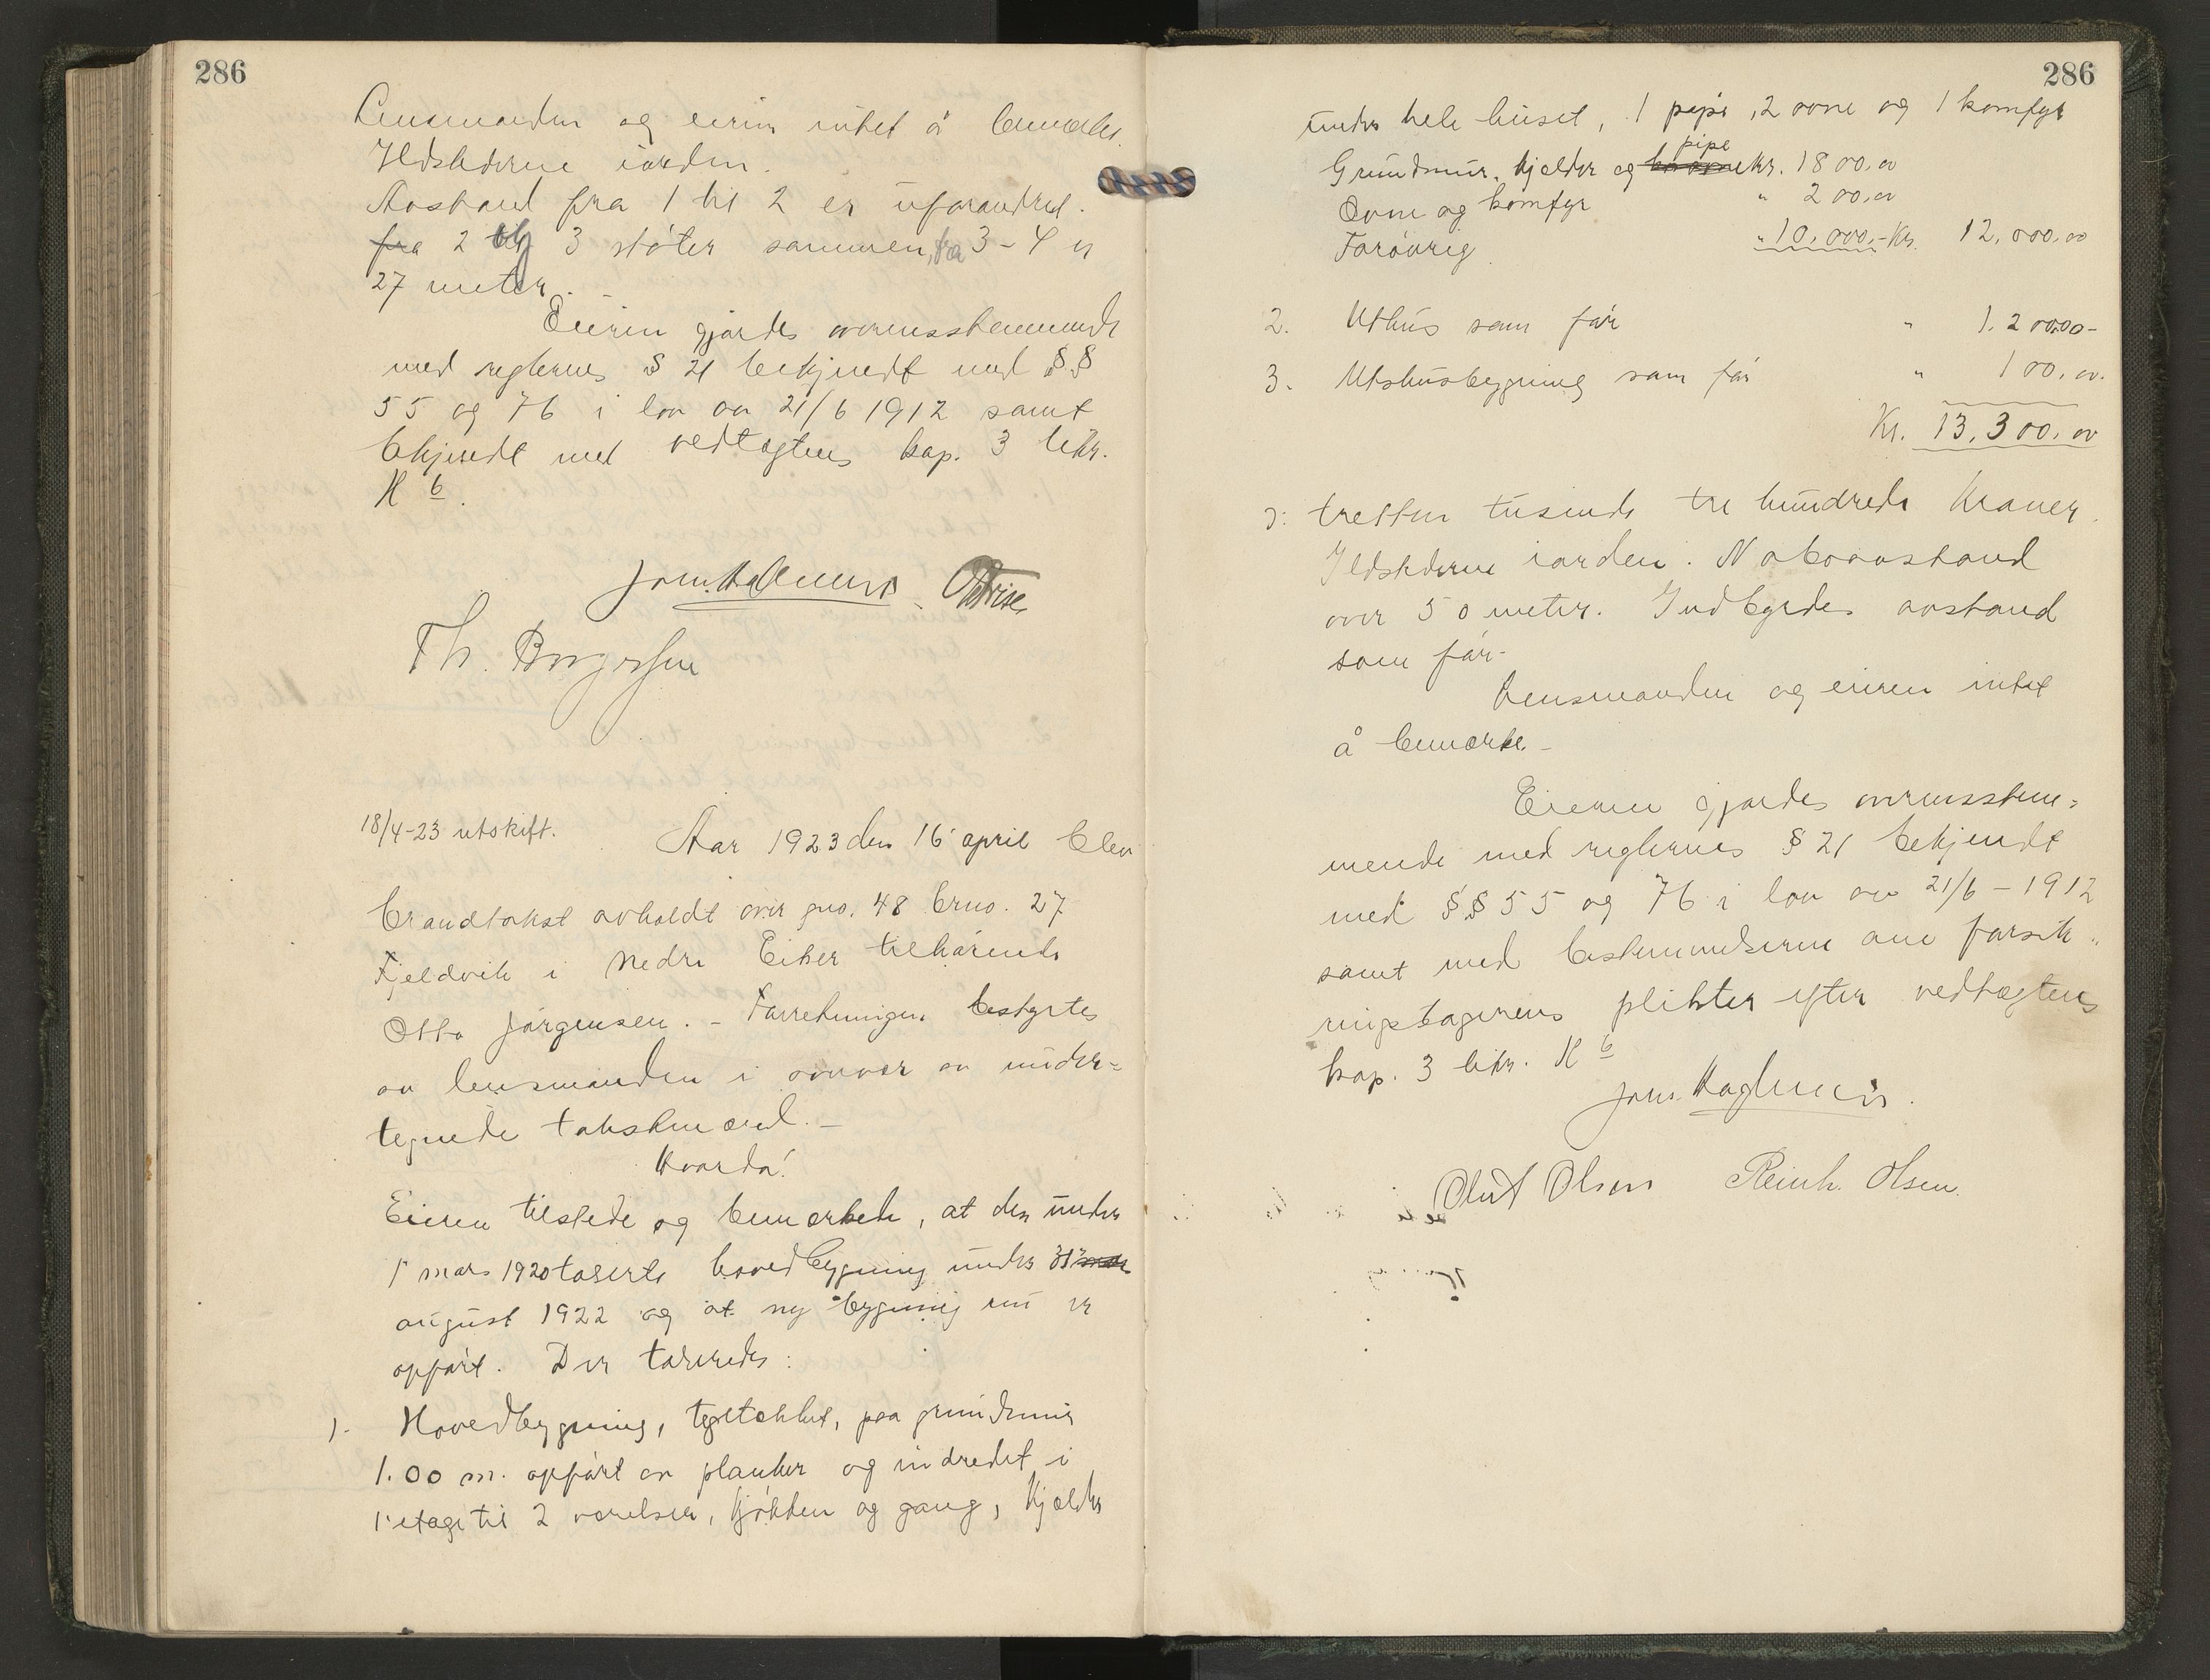 286
Lensmanden og eieren intet å bemerke.
Ildstederne iorden.
Avstand fra 1 til 2 er uforandret.
fra 2 og 3 støter sammen, fra 3-4 er
27 meter. -
Eieren gjordes overensstemmende
med reglernes § 21 bekjendt med §§
55 og 76 i lov av 21/6 1912 samt
bekjendt med vedtægtens kap. 3 litr.
H 6.
Th. Borgersen
18/4-23 utskift.
Aar 1923 den 16 april blev
brandtakst avholdt over gno. 48 brno. 27
Fjeldvik i Nedre Eiker tilhørende
Otto Jørgensen. - Forretningen bestyrtes
av lensmanden i nærvær av under-
tegnede takstmænd. -
Hvorda!
Eieren tilstede og bemerkede, at den under
1 mars 1920 taxerte hovedbygning under 31
august 1922 og at ny bygning nu er
opført. Der taxeredes:
1. Hovedbygning, tegltækket, paa grundmur
1.00 m. opført av planker og indredet i
1 etage til 2 værelser, kjøkken og gang, kjelder
286
under hele huset, 1 pipe, 2 ovne og 1 komfyr
pipe
Grundmur, kjelder og kr. 1800,00
Ovne og komfyr " 200,00
Forøvrig " 10,000,- Kr. 12,000,00
2. Uthus som før " 1.200,00-
3. Uthusbygning som før " 100,00.
Kr. 13,300,00
ɔ: tretten tusinde tre hundrede Kroner.
Ildstederne iorden. Naboavstand
over 50 meter. Indbyrdes avstand
som før-
Lensmanden og eieren intet
å bemerke. -
Eieren gjordes overensstem=
mende med reglernes § 21 bekjendt
med §§ 55 og 76 i lov av 21/6 - 1912
samt med bestemmelserne om forsik-
ringstagerens plikter efter vedtægtens
kap. 3 litr. H 6
Oluf Olsen Reinh. Olsen.